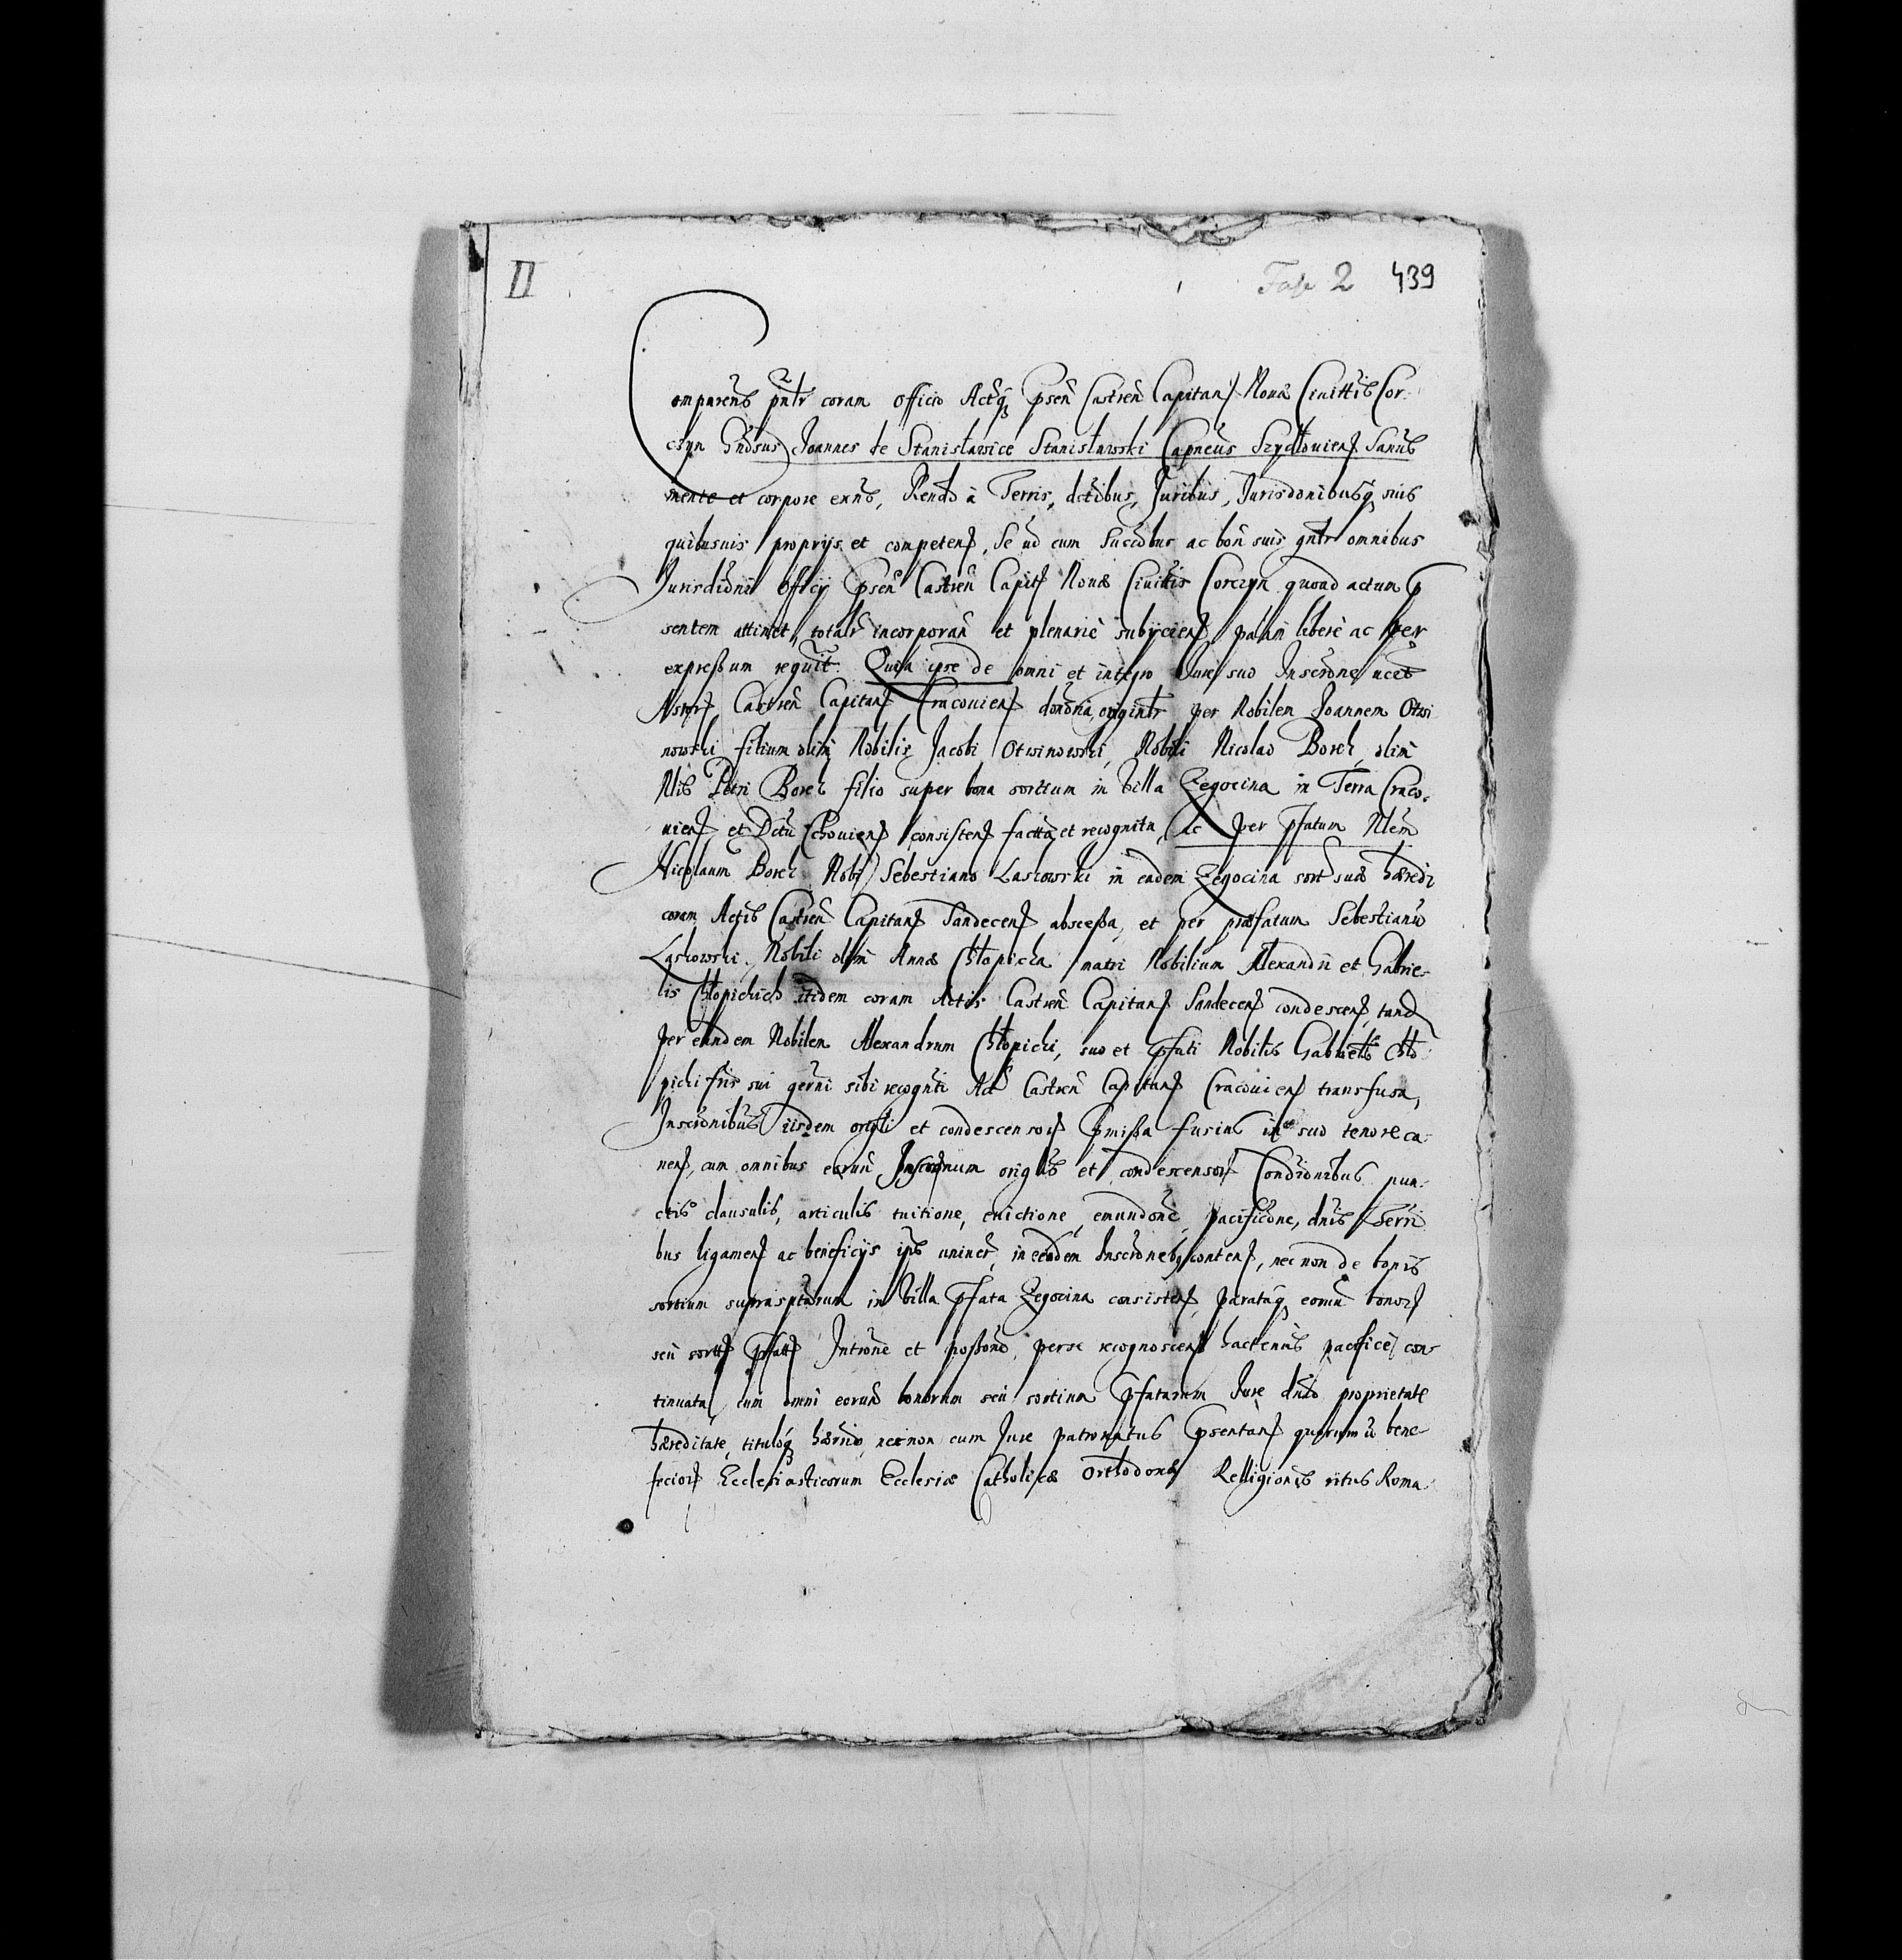 II
Fasc 2 439
Comparens pntr coram Officio Actq psen Castren Capitan Nouæ Ciuittis Cor-
czyn Gnosus Joannes de Stanisławice Stanisławski Capneus Szydłouien Sanus
mente et corpore exns, Rendo à Terris, dctibus, Juribus, Jurisdonibusq suis
quibusuis proprijs et competen, Se ad cum Succobus ac bon suis gntr omnibus
Jurisdidni Officij psen Castren Capit Nouæ Ciuittis Corczyn quoad actum p
sentem attinet, totalr incorporan et plenariè subijcien palàm liberè ac per
expressum regnuit. Quia ipse de omni et integro Jure suo Inscrone
Castren Capitan Cracouien donoria originlr per Nobilem Joannem Otwi
nowski filium olim Nobilis Jacobi Otwinowski, Nobili Nicolao Borek, olim
Nlis Petri Borek filio super bona sortium in Villa Zegocina in Terra Craco-
uien et Dctu consisten factta et recognita, ac per pfatum Nlem
Nicolaum Borek Nobi Sebestiano Laskowski in eadem Zegocina sort suæ hæredi
coram Actis Castren Capitan Sandecen abscessa, et per præfatum Sebestianu
Laskowski, Nobili olim Annæ Chłopicka matri Nobilium Alexandri et Gabrie-
lis Chłopickich itidem coram Actis Castren Capitan Sandecen condescen, tand
per eundem Nobilem Alexandrum Chłopicki, suo et pfati Nobilis Gabrielis Chło-
picki fris sui gerni sibi recognti Act Castren Capitan Cracouien transfusa,
Inscronibus iisdem origli et condescensor pmissa fusius in suo tenore ca-
nen, cum omnibus earun origlis et condescensor Condionibus pun-
ctis clausulis, articulis tuitione, euictione, emundone, pacificone, dnis Terri
bus ligamen ac beneficijs ips, in eisdem Inscrone conten, nec non de bonis
sortium suprasptarum in Villa pfata Zegocina consisten, parataq eorum bonor
seu sortt pfatt Introne et possone, per se recognoscen hactenus pacificè con-
tinuata, cum omni eorun bonorum seu sortium pfatarum Jure dnio proprietate
hæreditate, tituloq hærrio, nec non cum Jure patronatus psentan quorumu bene-
ficior Ecclesiasticorum Ecclesiæ Catholicæ Orthodoxæ Relligionis ritus Roma-